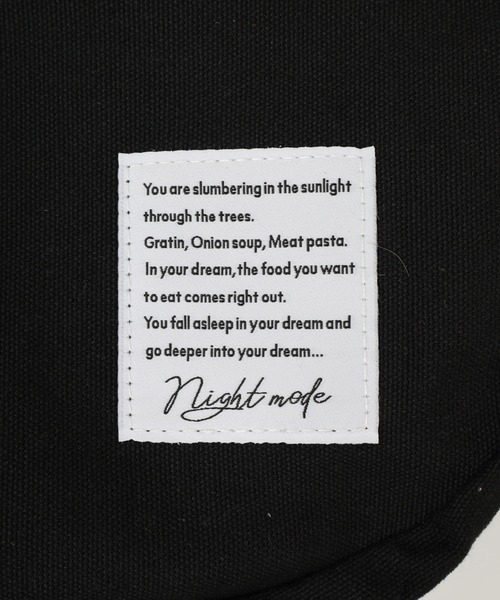 You are slumbering in the sunlight
through the trees.
Gratin, Onion soup, Meat pasta.
In your dream, the food you want
to eat comes right out.
You fall asleep in your dream and
go deeper into your dream...
Night mode